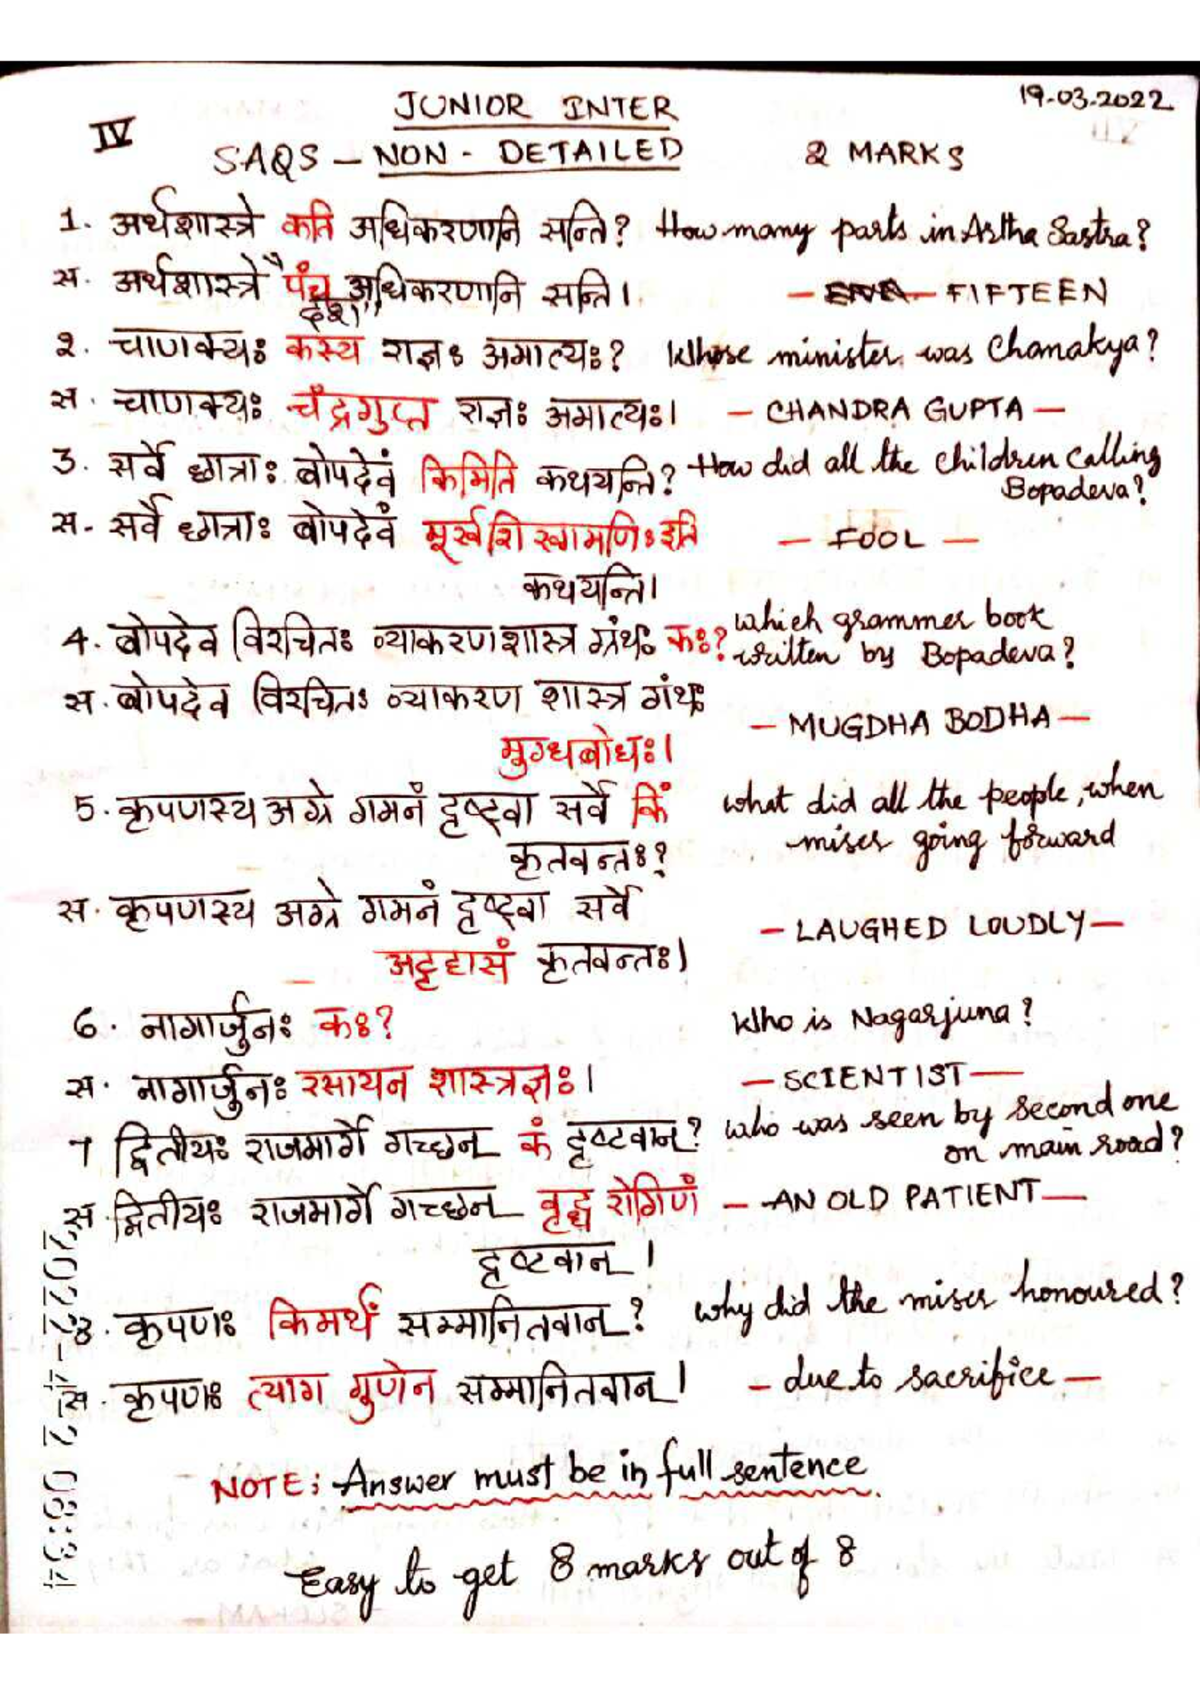 JUNIOR INTER
19.03.2022
IV
SAQS - NON - DETAILED 2 MARKS
1. अर्थशास्त्रे कति अधिकरणानि सन्ति? How many parts in Artha Sastra?
स. अर्थशास्त्रे "पंच अधिकरणानि सन्ति। - FIFTEEN
दश"
२. चाणक्यः कस्य राज्ञः अमात्यः? Whose minister was Chanakya?
स. चाणक्यः चंद्रगुप्त राज्ञः अमात्यः। - CHANDRA GUPTA -
3. सर्वे छात्राः बोपदेवं किमिति कथयन्ति? How did all the children calling
Bopadeva?
स- सर्वे छात्राः बोपदेवं मूर्खशिखामणिः इति - FOOL -
कथयन्ति।
4. बोपदेव विरचितः व्याकरणशास्त्र ग्रंथः कः? which grammer book
written by Bopadeva?
स. बोपदेव विरचितः व्याकरण शास्त्र गंथः
- MUGDHA BODHA -
मुग्धबोधः।
5. कृपणस्य अग्रे गमनं दृष्ट्वा सर्वे किं what did all the people, when
कृतवन्तः? miser going forward
स. कृपणस्य अग्रे गमनं दृष्ट्वा सर्वे
- LAUGHED LOUDLY -
अट्टहासं कृतवन्तः।
6. नागार्जुनः कः? Who is Nagarjuna?
स. नागार्जुनः रसायन शास्त्रज्ञः। - SCIENTIST -
7 द्वितीयः राजमार्गे गच्छन् कं दृष्टवान्? who was seen by second one
on main road?
स द्वितीयः राजमार्गे गच्छन् वृद्ध रोगिणं - AN OLD PATIENT -
दृष्टवान्।
8. कृपणः किमर्थं सम्मानितवान्? why did the miser honoured?
स. कृपणः त्याग गुणेन सम्मानितवान्। - due to sacrifice -
NOTE: Answer must be in full sentence.
Easy to get 8 marks out of 8
2022-4-2 08:34